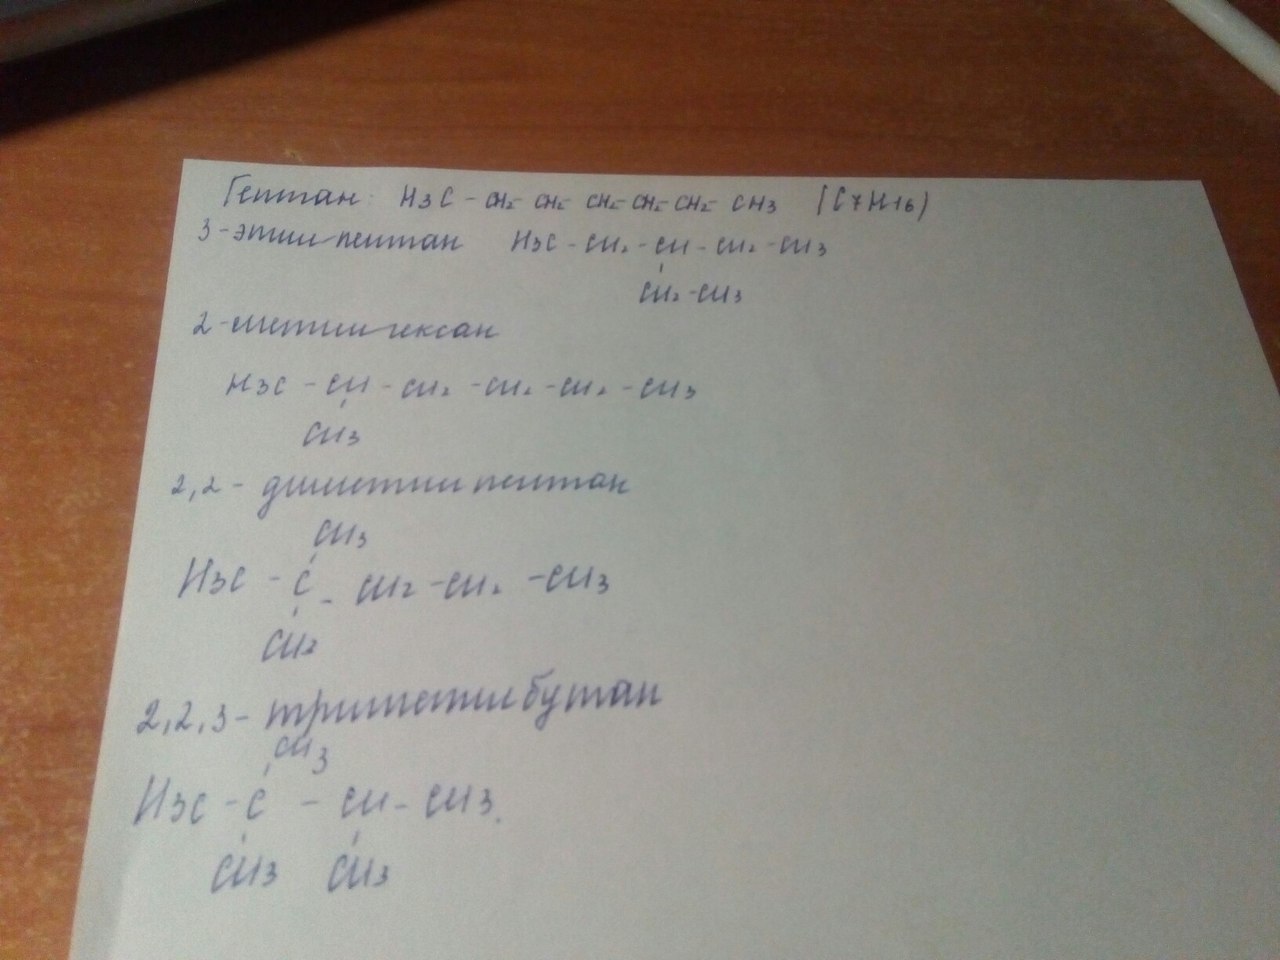 Гептан: H3C - CH2 - CH2 - CH2 - CH2 - CH2 - CH3 (C7H16)
3-этилпентан H3C - CH2 - CH - CH2 - CH3
CH2 - CH3
2-метилгексан
H3C - CH - CH2 - CH2 - CH2 - CH3
CH3
2,2 - диметилпентан
CH3
H3C - C - CH2 - CH2 - CH3
CH2
2,2,3 - триметилбутан
CH3
H3C - C - CH - CH3.
CH3 CH3